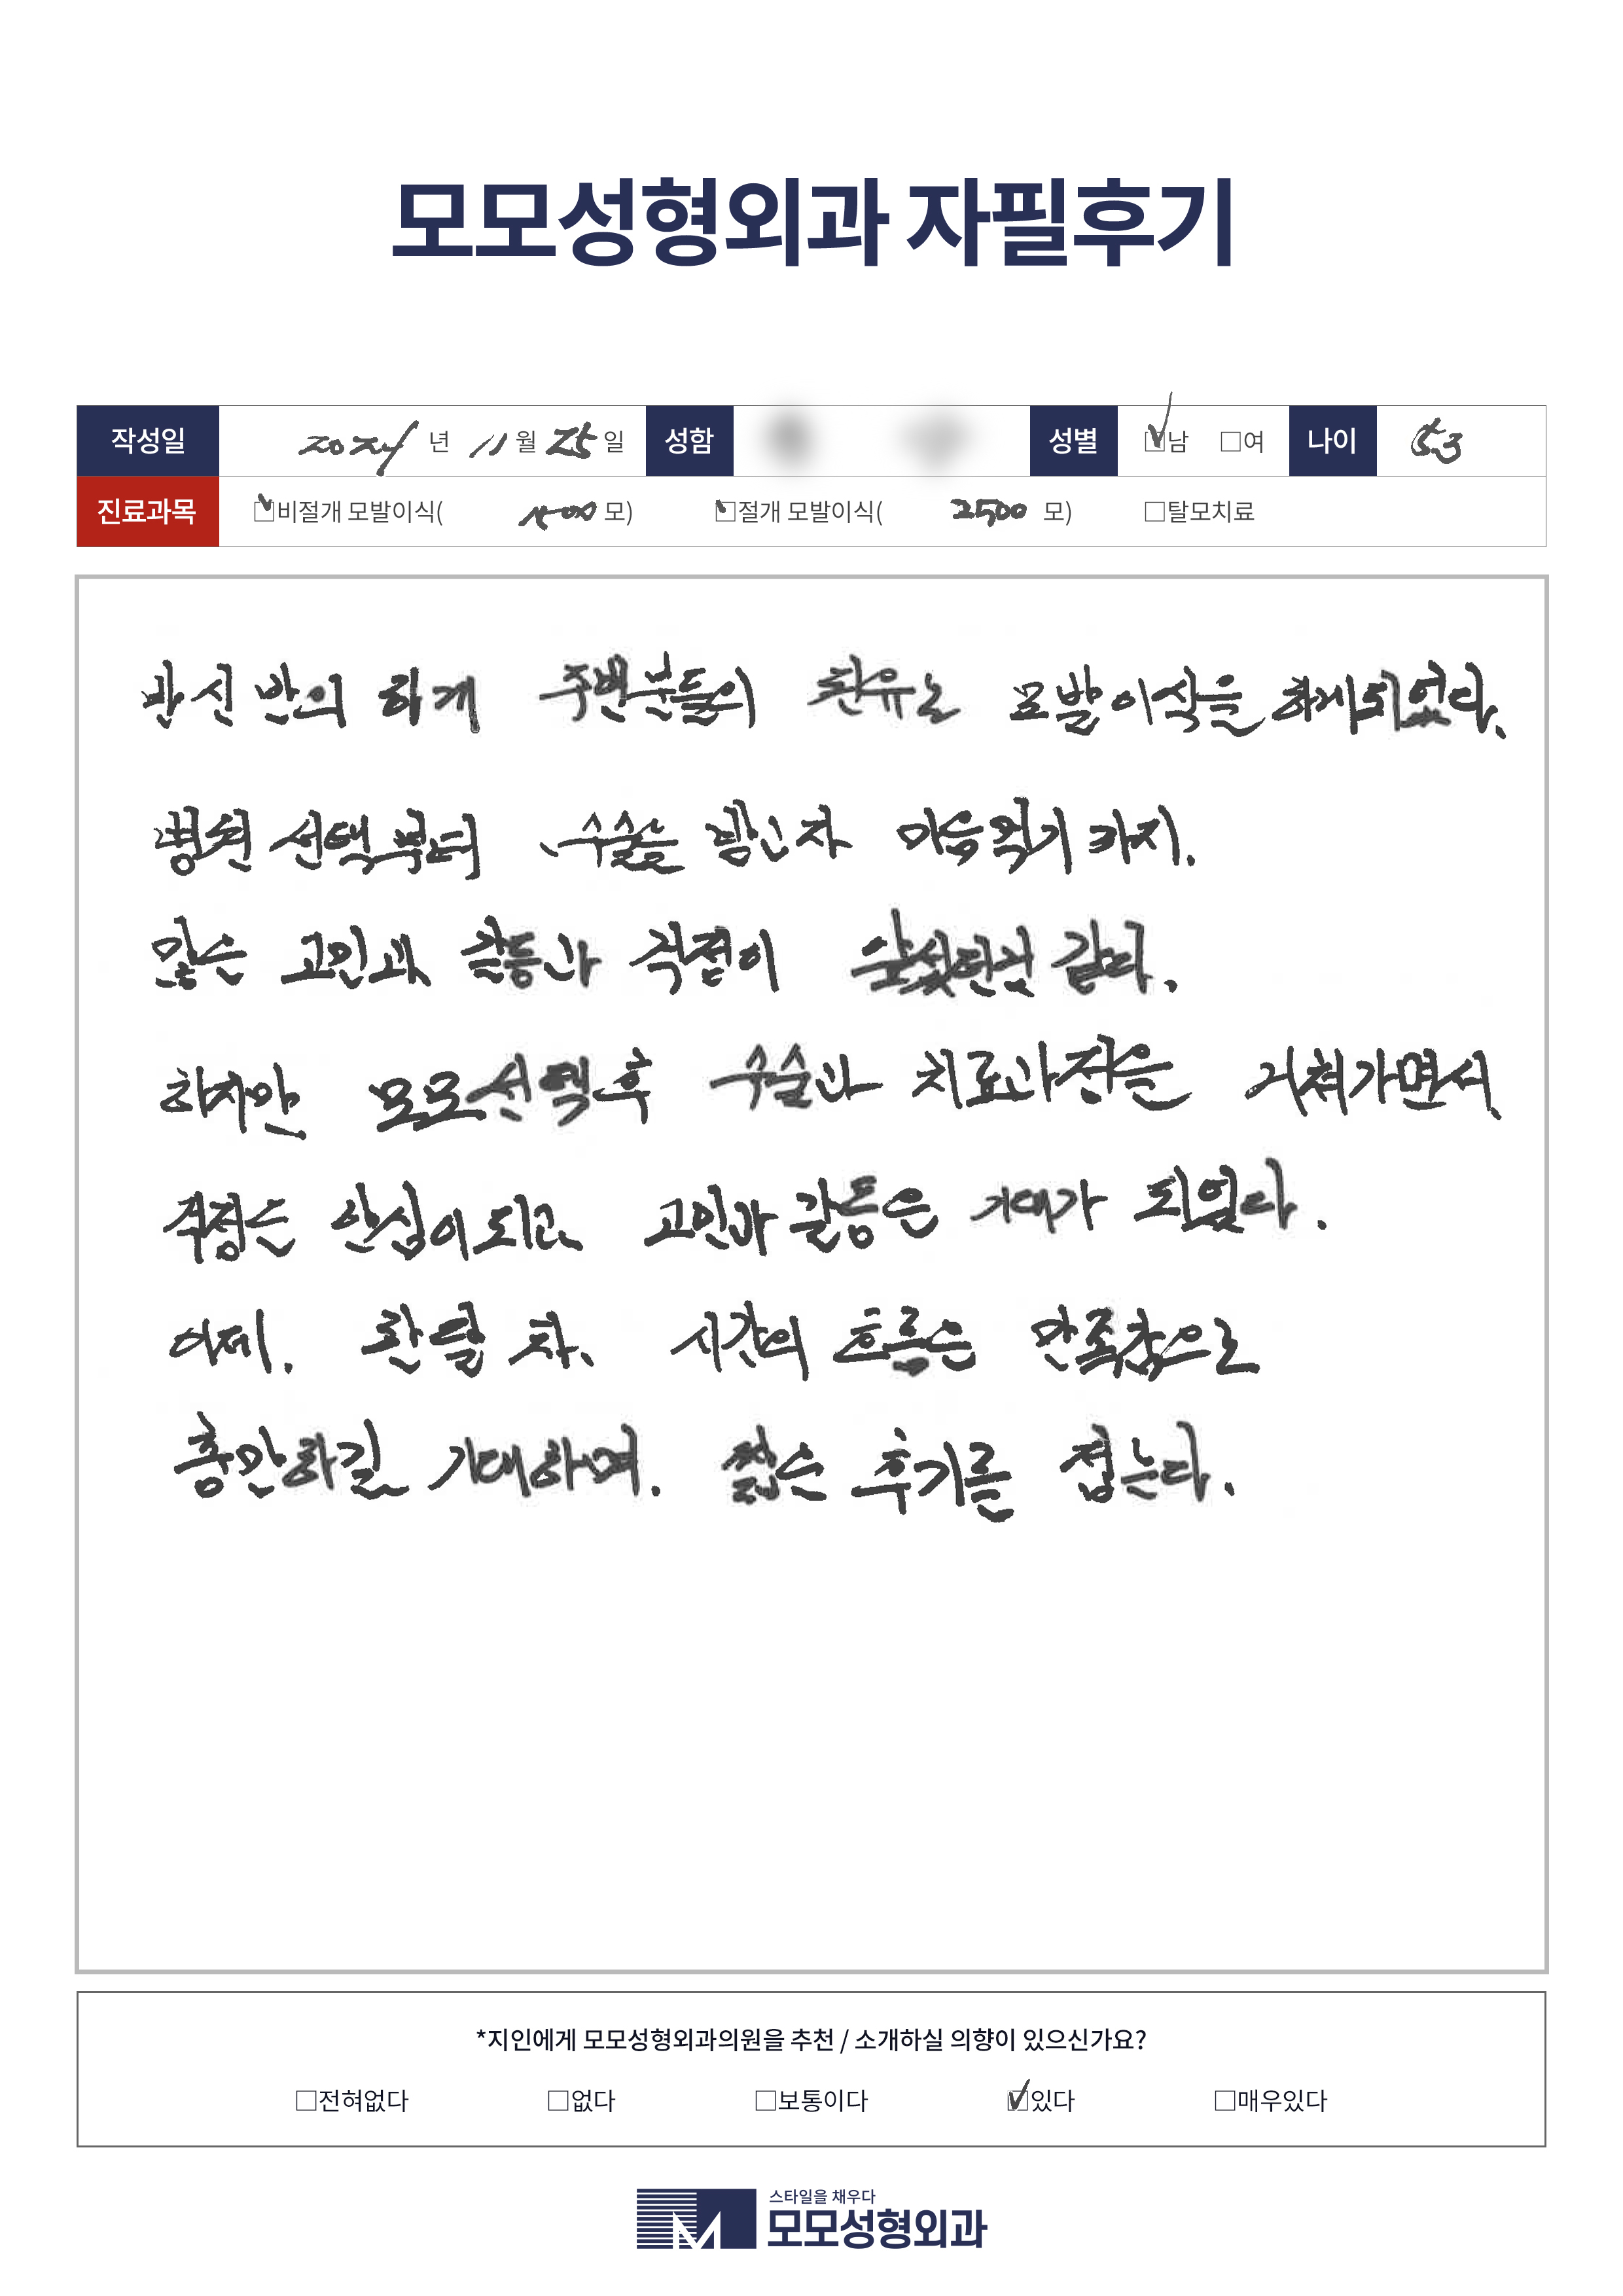 모모성형외과 자필후기
작성일 2024 년 11 월 25 일 성함 성별 ☑남 □여 나이 53
진료과목 ☑비절개 모발이식( 1500 모) ☑절개 모발이식( 2500 모) □탈모치료
반신반의 하게 주변분들의 권유로 모발이식을 하게되었다.
병원 선택부터 수술을 받고자 마음먹기 까지.
많은 고민과 갈등과 걱정이 앞섰던것 같다.
하지만 모모선택후 수술과 치료과정을 거쳐가면서
걱정은 안심이 되고 고민과 갈등은 기대가 되었다.
이제. 한달 차. 시간의 흐름은 만족감으로
충만하길 기대하며. 짧은 후기를 접는다.
*지인에게 모모성형외과의원을 추천 / 소개하실 의향이 있으신가요?
□전혀없다 □없다 □보통이다 ☑있다 □매우있다
스타일을 채우다
모모성형외과